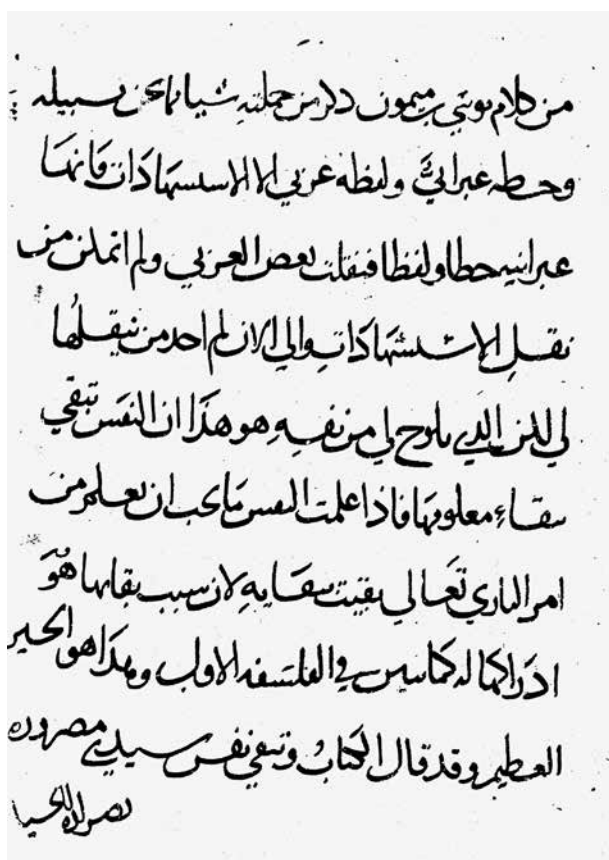 من كلام موسى بن ميمون ذكر من جملته شيا مما نحن بسبيله
وخطه عبراني ولفظه عربي الا الاستشهادات فانها
عبرانيه خطا ولفظا فنقلت بعض العربي ولم اتمكن من
نقل الاستشهادات والى الان لم اجد من ينقلها
لي لكن الذي يلوح لي من نفسه هو هذا ان النفس تبقي
ببقاء معلومها فاذا علمت النفس ما يجب ان يعلم من
امر الباري تعالي بقيت ببقايه لان سبب بقايها هو
ادراكها له كما تبين في الفلسفه الاولي وهذا هو الخير
العظيم وقد قال الكتاب وتبقي نفس سيدي مصروره
بصرار الحيا